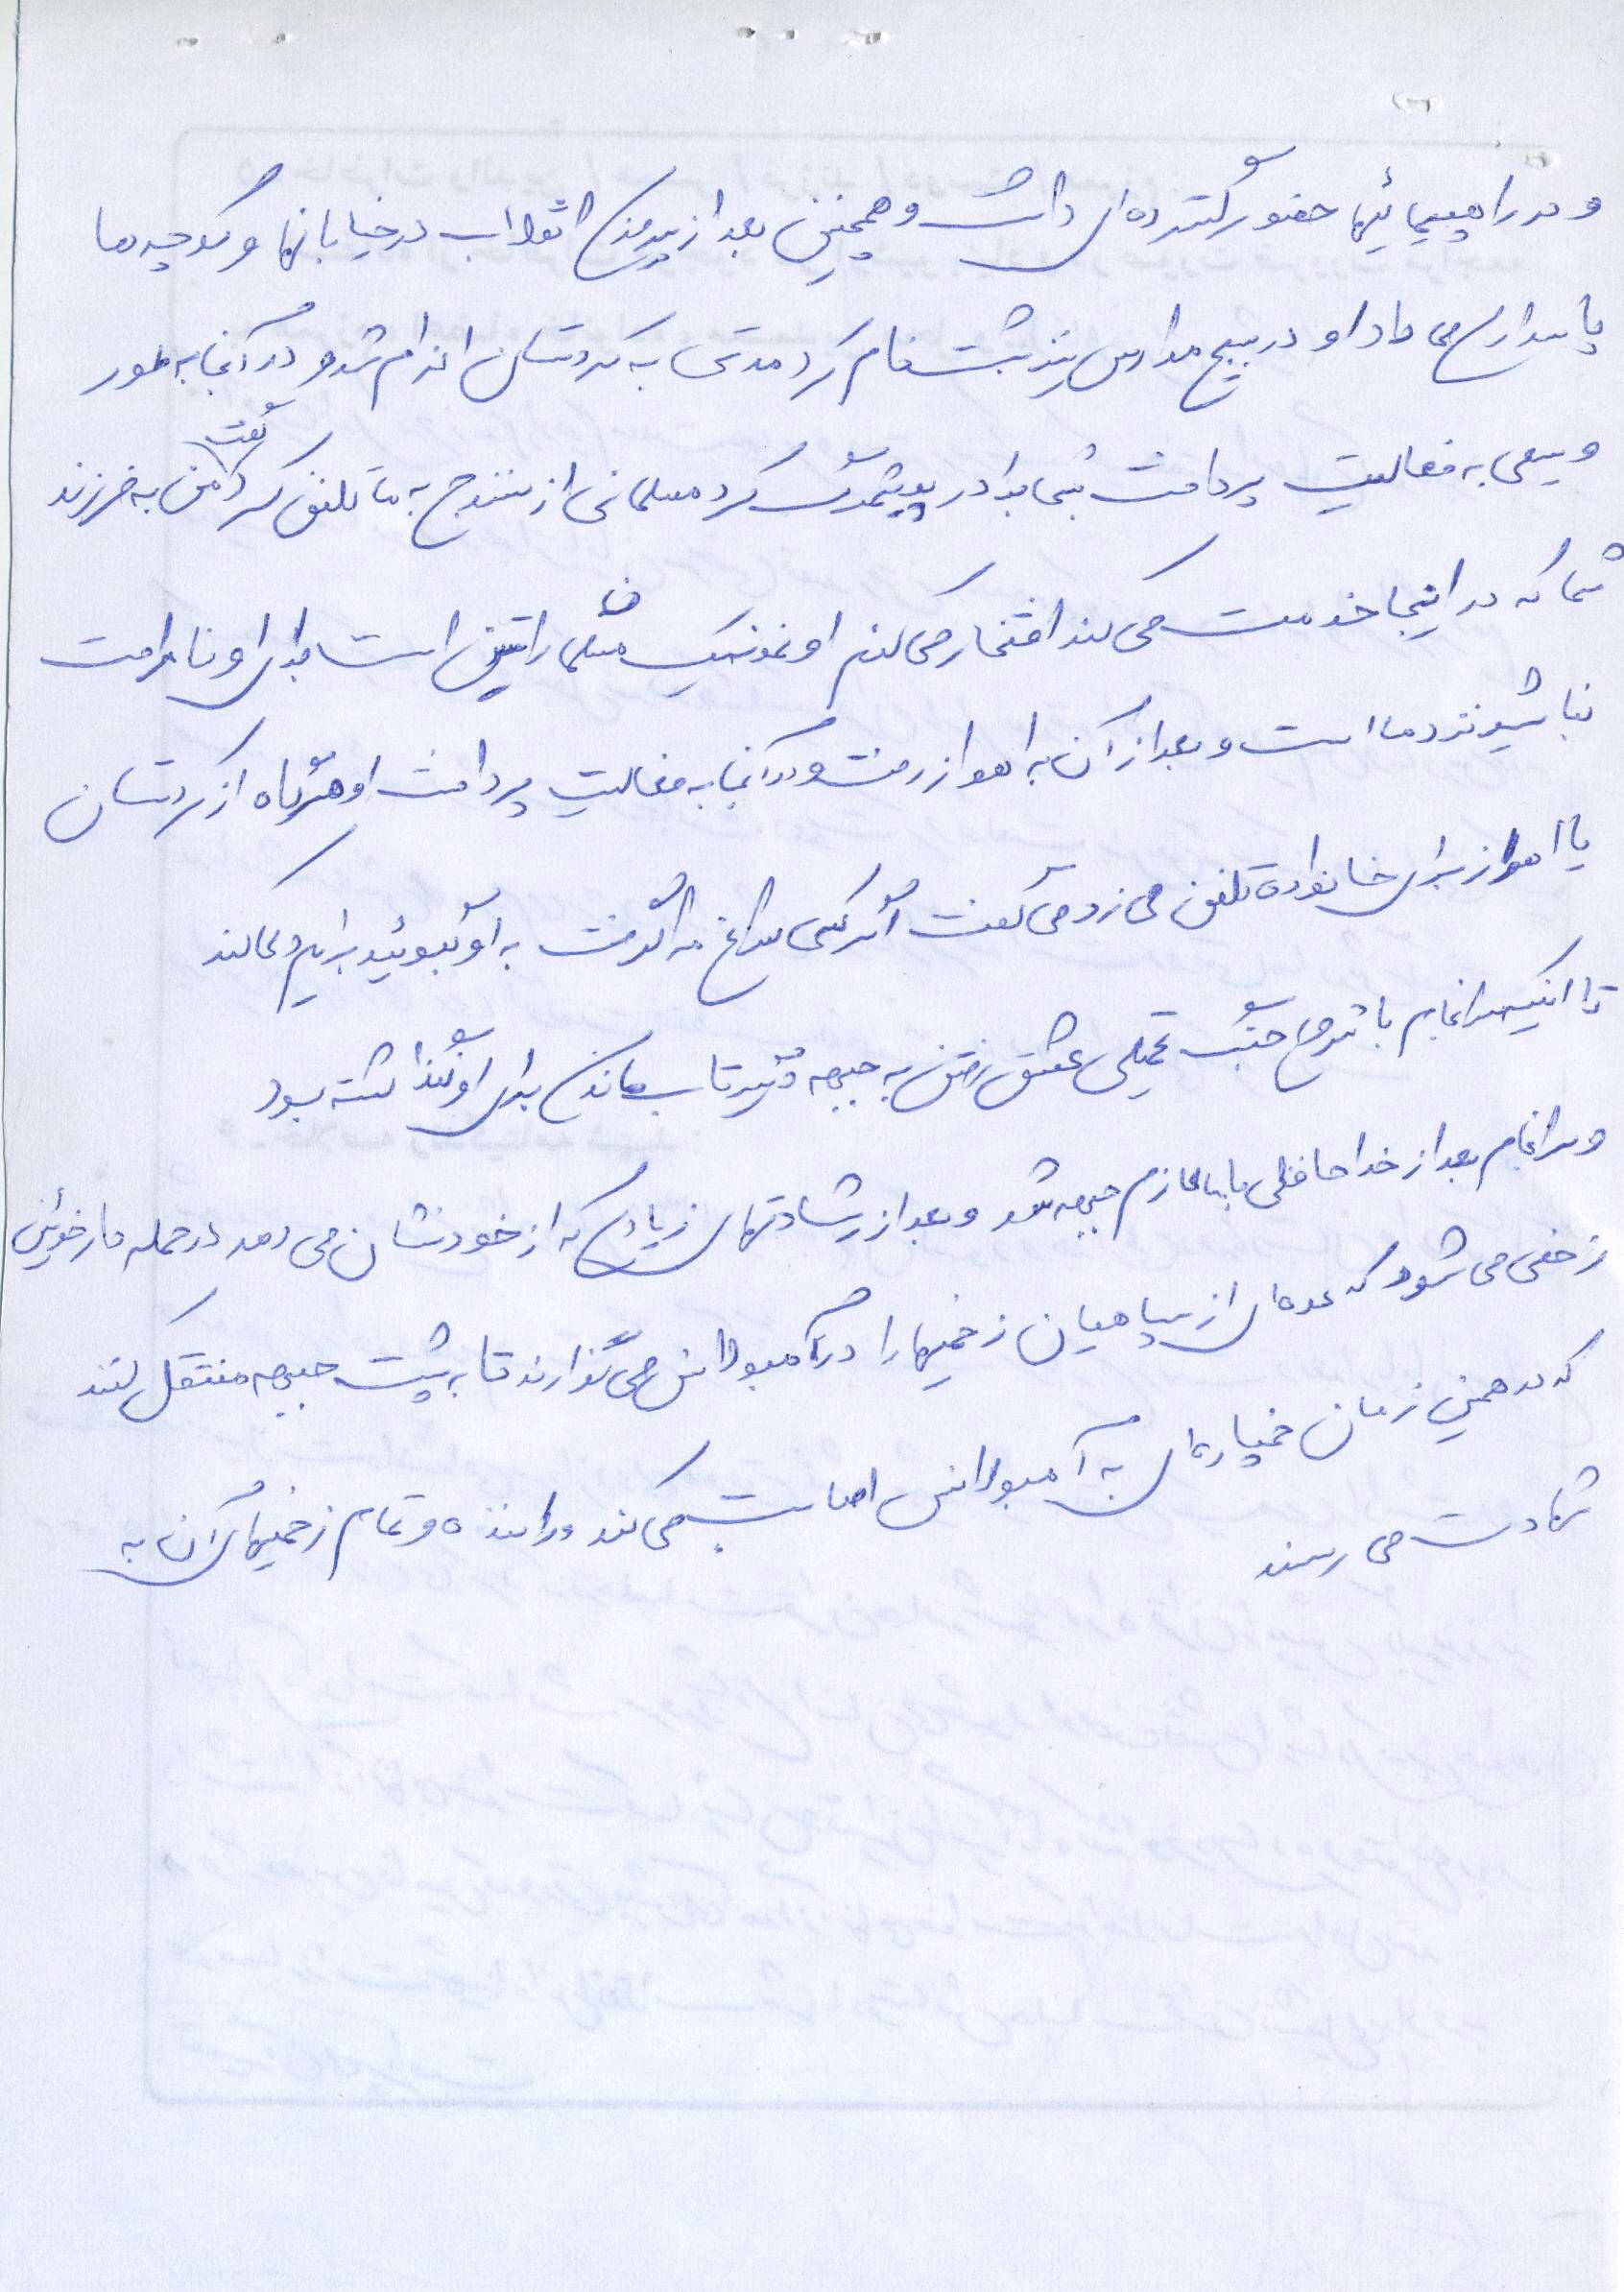 و در راهپیمائیها حضور گسترده‌ای داشت و همچنین بعد از پیروزی انقلاب در خیابانها و کوچه‌ها
پاسداری می‌داد او در بسیج مدارس نیز ثبت نام کرد مدتی به کردستان اعزام شد و در آنجا به طور
وسیعی به فعالیت پرداخت شبی برادر پیشمرگ کرد مسلمانی از سنندج به ما تلفن کرد گفت من به فرزند
شما که در اینجا خدمت می کند افتخار می کنم او نمونه یک مسلمان راستین است برای او ناراحت
نباشید نزد ما است و بعد از آن به اهواز رفت و در آنجا به فعالیت پرداخت او هرگاه از کردستان
یا اهواز برای خانواده تلفن می زد می گفت اگر کسی سراغ مرا گرفت به او بگوئید برایم دعا کند
تا اینکه سرانجام با شروع جنگ تحمیلی عشق رفتن به جبهه دیگر تاب ماندن برای او نگذاشته بود
و سرانجام بعد از خداحافظی با ما عازم جبهه شد و بعد از رشادتهای زیادی که از خود نشان می دهد در حمله دارخوئین
زخمی می شود که عده‌ای از سپاهیان زخمیها را در آمبولانس می گذارند تا به پشت جبهه منتقل کنند
که در همین زمان خمپاره‌ای به آمبولانس اصابت می کند و راننده و تمام زخمیهای آن به
شهادت می رسند